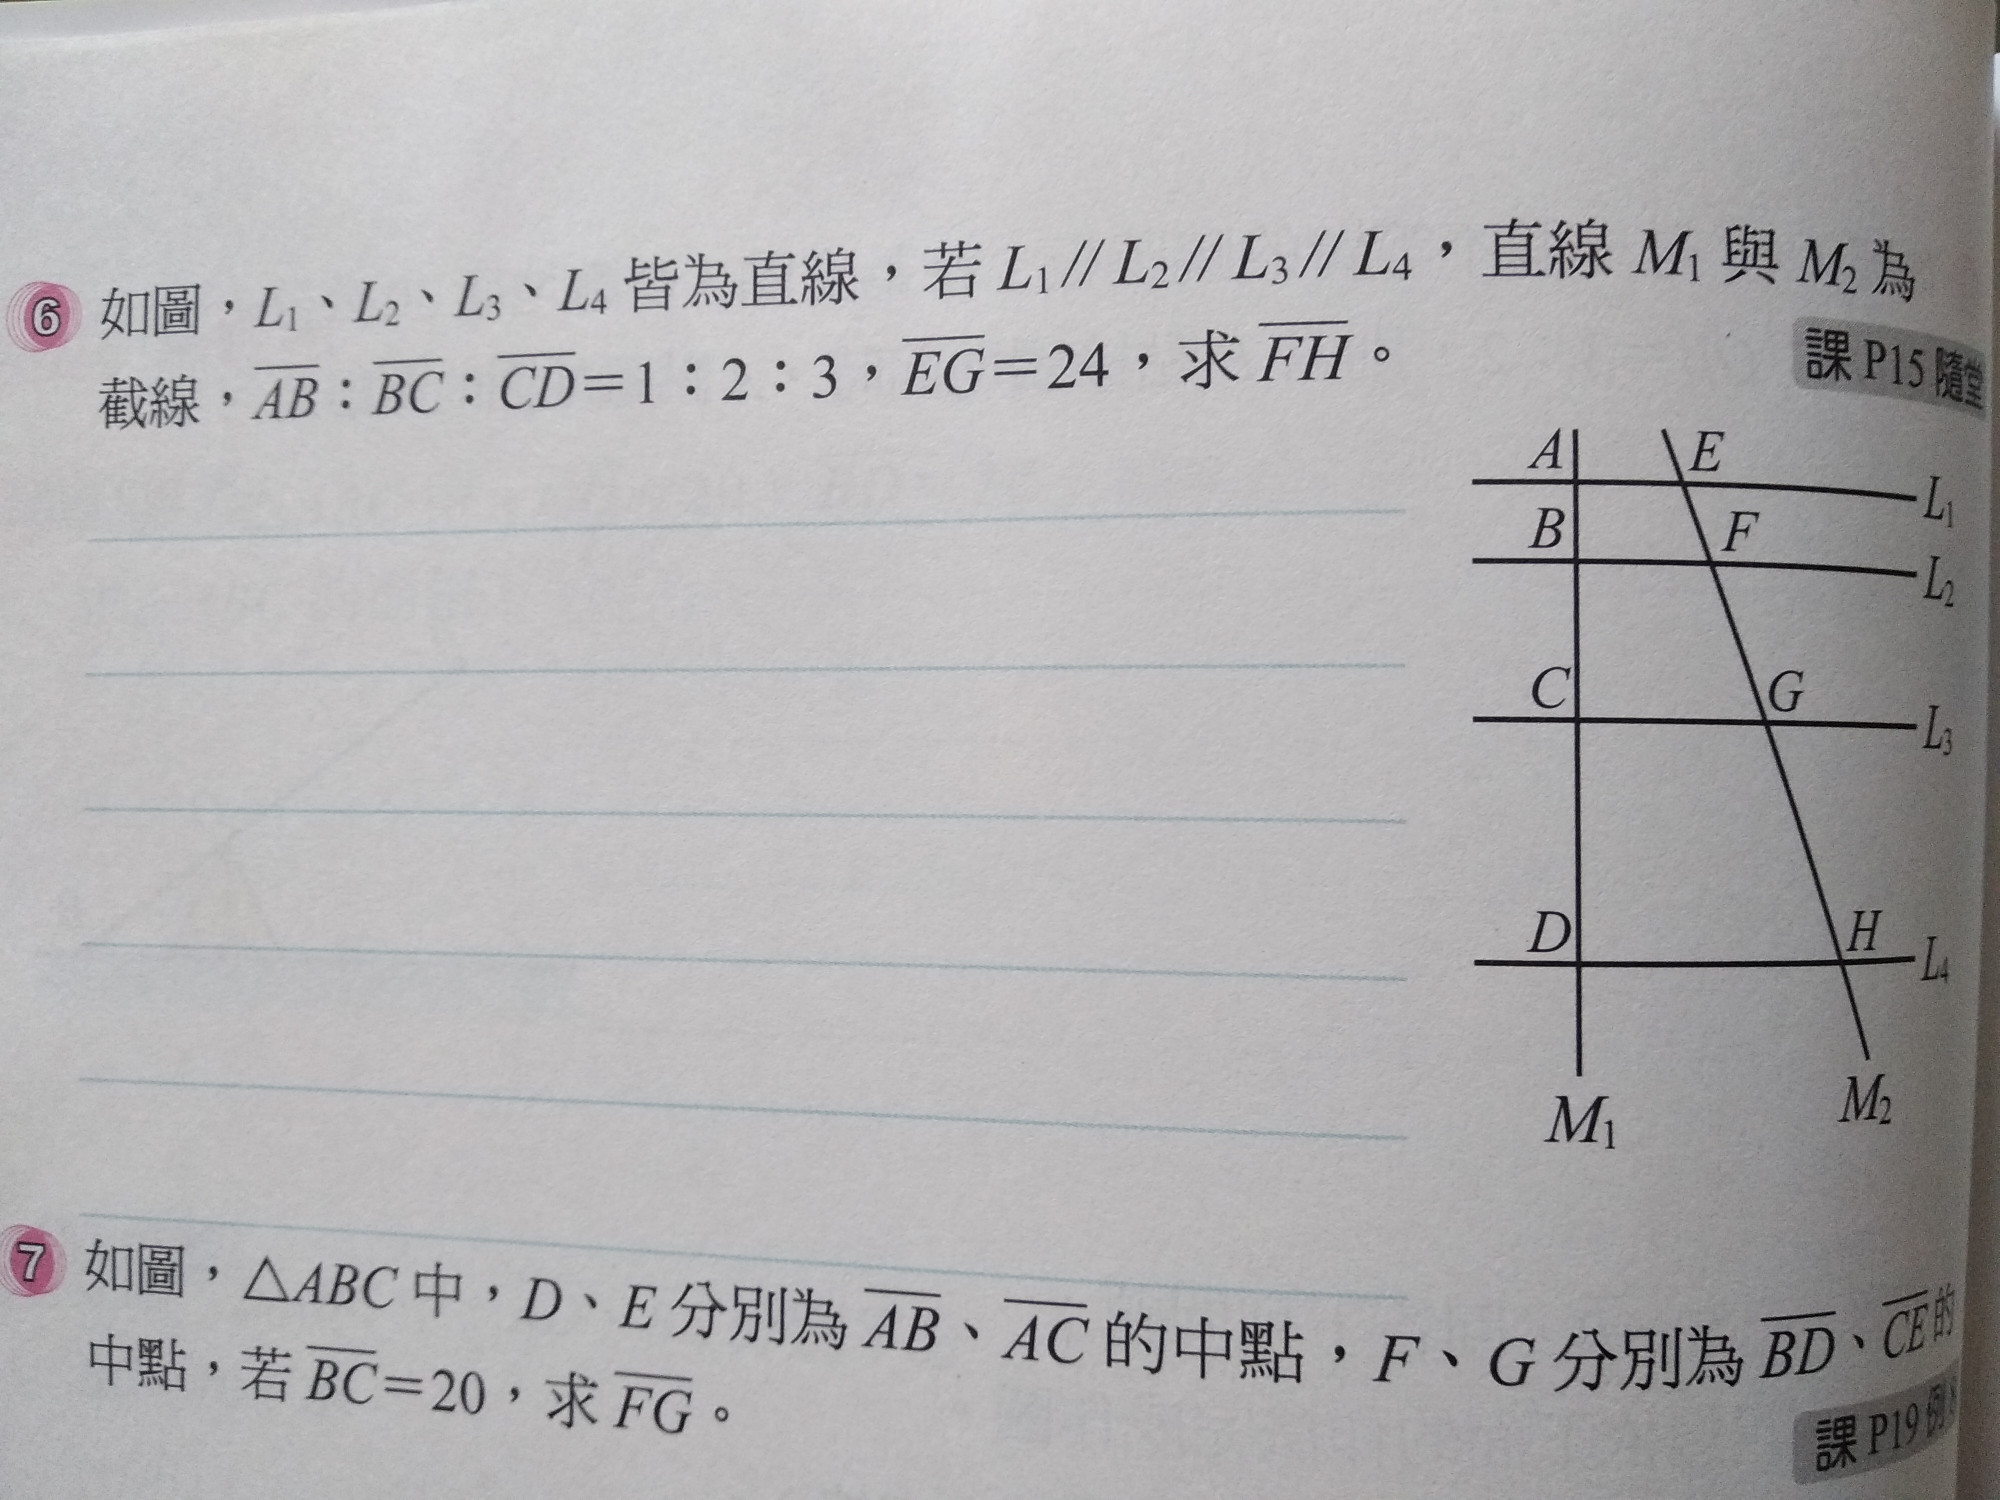 6 如圖，L₁、L₂、L₃、L₄ 皆為直線，若 L₁∥L₂∥L₃∥L₄，直線 M₁ 與 M₂ 為
截線，AB：BC：CD＝1：2：3，EG＝24，求 FH。
課 P15 隨堂
A E
L₁
B F
L₂
C G
L₃
D H
L₄
M₁ M₂
7 如圖，△ABC 中，D、E 分別為 AB、AC 的中點，F、G 分別為 BD、CE 的
中點，若 BC＝20，求 FG。
課 P19 例